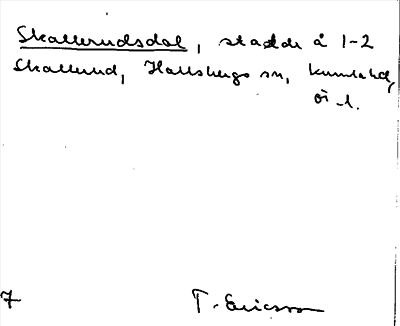 Skallerudsdal, stadde å 1-2
Skallerud, Hallsbergs sn, Kumla hd,
ö. l.
7 T. Ericsson